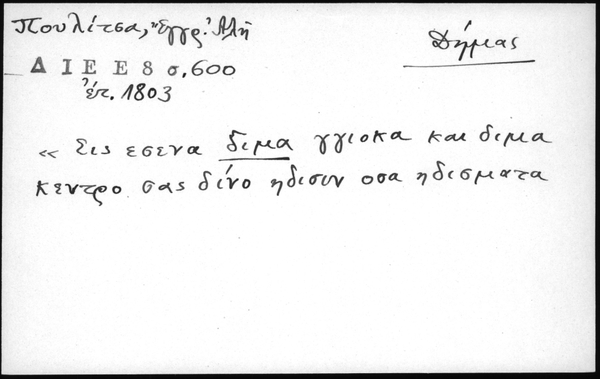 Πουλίτσα, Ἔγγρ. Ἀλῆ
Δήμας
Δ Ι Ε Ε 8 σ. 600
ἔτ. 1803
« Σις εσενα διμα γγιοκα και διμα
κεντρο σας δίνο ηδισιν οσα ηδισματα